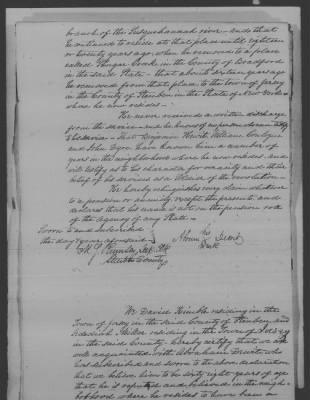 branch of the Susquehannah river - and that
he continued to reside at that place until eighteen
or twenty years ago, when he removed to a place
called Creek, in the County of Bradford
in the said State - that about sixteen years ago
he removed from that place to the town of Jersey
in the County of Steuben in the State of New York
where he now resides -
He never received a written discharge
from the service and he knows of no person
That Benjamin
and John have known him a number of
years in the neighborhood where he now resides and
will testify as to his character for veracity and their
belief of his services as a soldier of the revolution -
He hereby relinquishes every claim whatever
to a pension or annuity except the present and
declares that his name is not on the pension roll
of the agency of any State -
Sworn to and subscribed
the day & year aforesaid
his
mark
Steuben County
We David Kimble residing in the
Town of Jersey in the said County of Steuben, and
Frederick residing in the Town of Jersey
in the said County hereby certify that we are
well acquainted with Abraham who
has subscribed and sworn to the above declaration
that we believe him to be sixty eight years of age
that he is reputed and believed in the neigh-
bothood where he resides to have been a